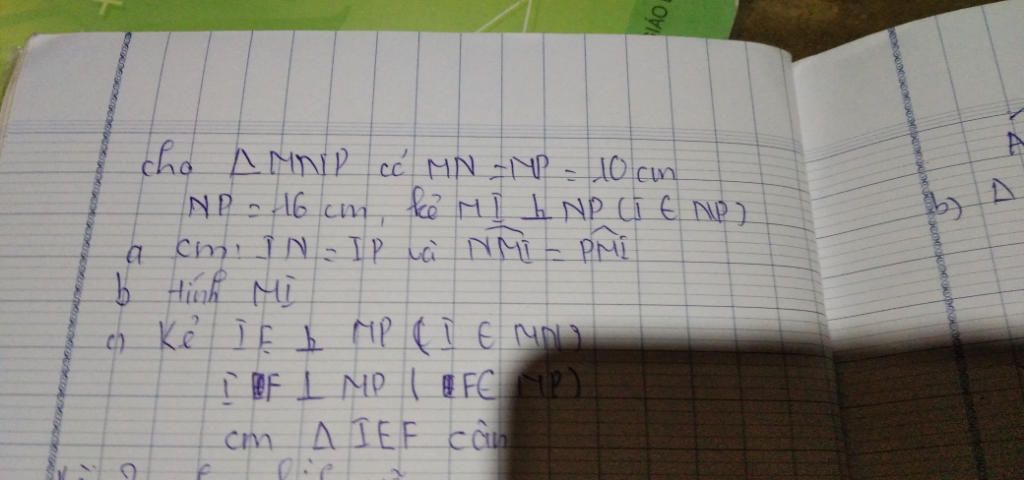 GIÁO
cho Δ MNP có MN = MP = 10 cm
NP = 16 cm, kẻ MI ⊥ NP (I ∈ NP)
a cm: IN = IP và NMI = PMI
b tính MI
c) Kẻ IE ⊥ MP (I ∈ MN)
I F ⊥ MP ( F ∈ MP)
cm Δ IEF cân
A
b) Δ